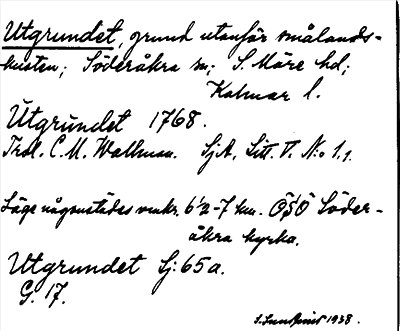 Utgrundet, grund utanför smålands-
kusten; Söderåkra sn; S. Möre hd;
Kalmar l.
Utgrundet 1768.
C. M. Wallman. SjA, Litt. V. No 1.
Läge någonstädes omkr. 6½-7 km. ÖSÖ Söder-
åkra kyrka.
Utgrundet Sj: 65a.
G. 17.
1938.